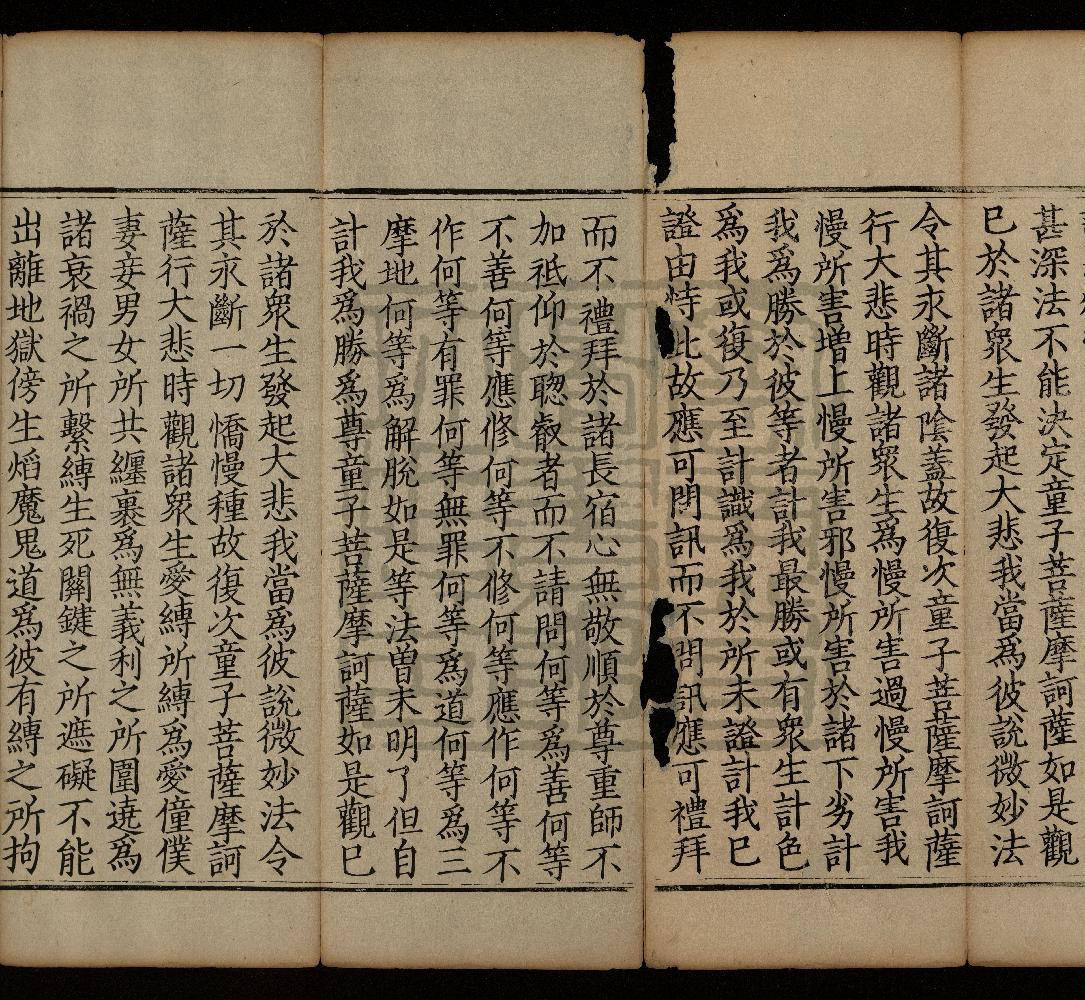 甚深法不能決定童子菩薩摩訶薩如是觀
已於諸衆生發起大悲我當為彼說微妙法
令其永斷諸陰蓋故復次童子菩薩摩訶薩
行大悲時觀諸衆生為慢所害過慢所害我
慢所害增上慢所害邪慢所害於諸下劣計
我為勝於彼等者計我最勝或有衆生計色
為我或復乃至計識為我於所未證計我已
證由恃此故應可問訊而不問訊應可禮拜
而不禮拜於諸長宿心無敬順於尊重師不
加祗仰於聰叡者而不請問何等為善何等
不善何等應修何等不修何等應作何等不
作何等有罪何等無罪何等為道何等為三
摩地何等為解脫如是等法曾未明了但自
計我為勝為尊童子菩薩摩訶薩如是觀已
於諸衆生發起大悲我當為彼說微妙法令
其永斷一切憍慢種故復次童子菩薩摩訶
薩行大悲時觀諸衆生愛縛所縛為愛僮僕
妻妾男女所共纏裹為無義利之所圍遶為
諸衰禍之所繫縛生死關鍵之所遮礙不能
出離地獄傍生焰魔鬼道為彼有縛之所拘